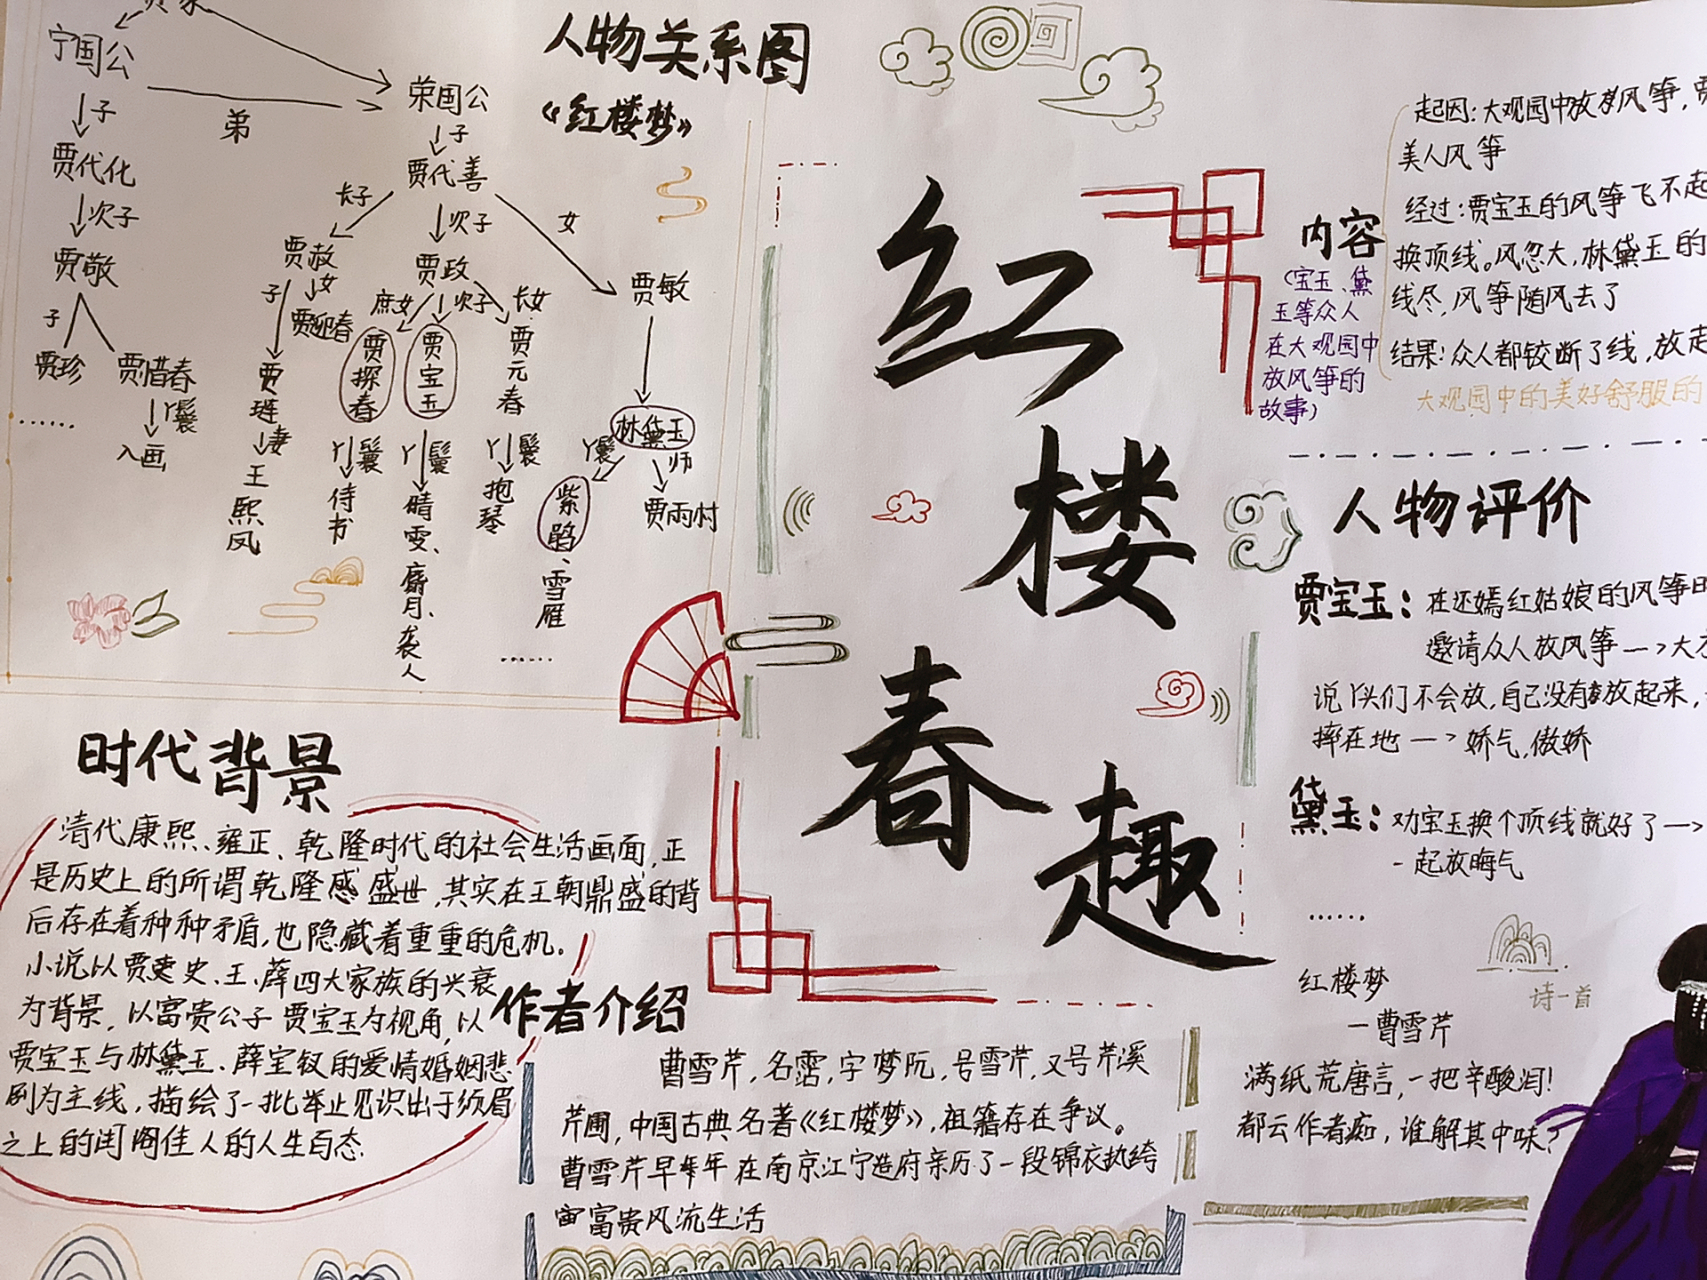 人物关系图
《红楼梦》
宁国公
子
贾代化
次子
贾敬
子
贾珍
贾惜春
丫鬟
入画
......
弟
荣国公
子
贾代善
长子
次子
女
贾赦
子
女
贾迎春
贾琏
妻
王熙凤
贾政
庶女
次子
长女
贾探春
丫鬟
侍书
贾宝玉
丫鬟
晴雯、麝月、袭人
贾元春
丫鬟
抱琴
贾敏
林黛玉
丫鬟
紫鹃、雪雁
师
贾雨村
......
红楼春趣
时代背景
清代康熙、雍正、乾隆时代的社会生活画面,正
是历史上的所谓乾隆盛世,其实在王朝鼎盛的背
后存在着种种矛盾,也隐藏着重重的危机。
小说以贾史、王、薛四大家族的兴衰
为背景,以富贵公子贾宝玉为视角,以
贾宝玉与林黛玉、薛宝钗的爱情婚姻悲
剧为主线,描绘了一批举止见识出于须眉
之上的闺阁佳人的人生百态.
作者介绍
曹雪芹,名霑,字梦阮,号雪芹,又号芹溪
芹圃,中国古典名著《红楼梦》,祖籍存在争议。
曹雪芹早年在南京江宁造府亲历了一段锦衣纨绔
富贵风流生活
内容
(宝玉、黛
玉等众人
在大观园中
放风筝的
故事)
起因:大观园中放风筝,贾
美人风筝
经过:贾宝玉的风筝飞不起
换顶线。风忽大,林黛玉的
线尽,风筝随风去了
结果:众人都铰断了线,放起
大观园中的美好舒服的
人物评价
贾宝玉:在还嫣红姑娘的风筝时
邀请众人放风筝—>大
说丫头们不会放,自己没有放起来,
摔在地—>娇气,傲娇
黛玉:劝宝玉换个顶线就好了—>
一起放晦气
......
诗一首
红楼梦
—曹雪芹
满纸荒唐言,一把辛酸泪!
都云作者痴,谁解其中味?